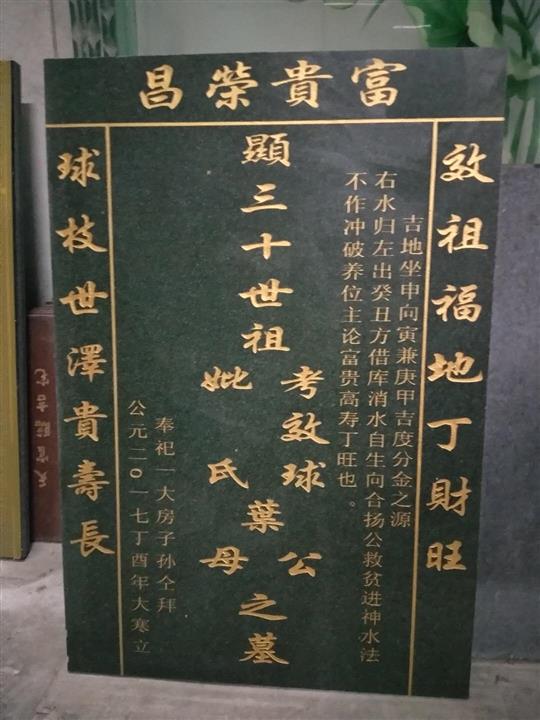 富貴榮昌
效祖福地丁財旺
吉地坐申向寅兼庚甲吉度分金之源
右水归左出癸丑方借库消水自生向合扬公救贫进神水法
不作冲破养位主论富贵高寿丁旺也。
顯三十世祖
考效球
妣氏
葉
公
母
之墓
奉祀一大房子孙仝拜
公元二〇一七丁酉年大寒立
球枝世澤貴壽長